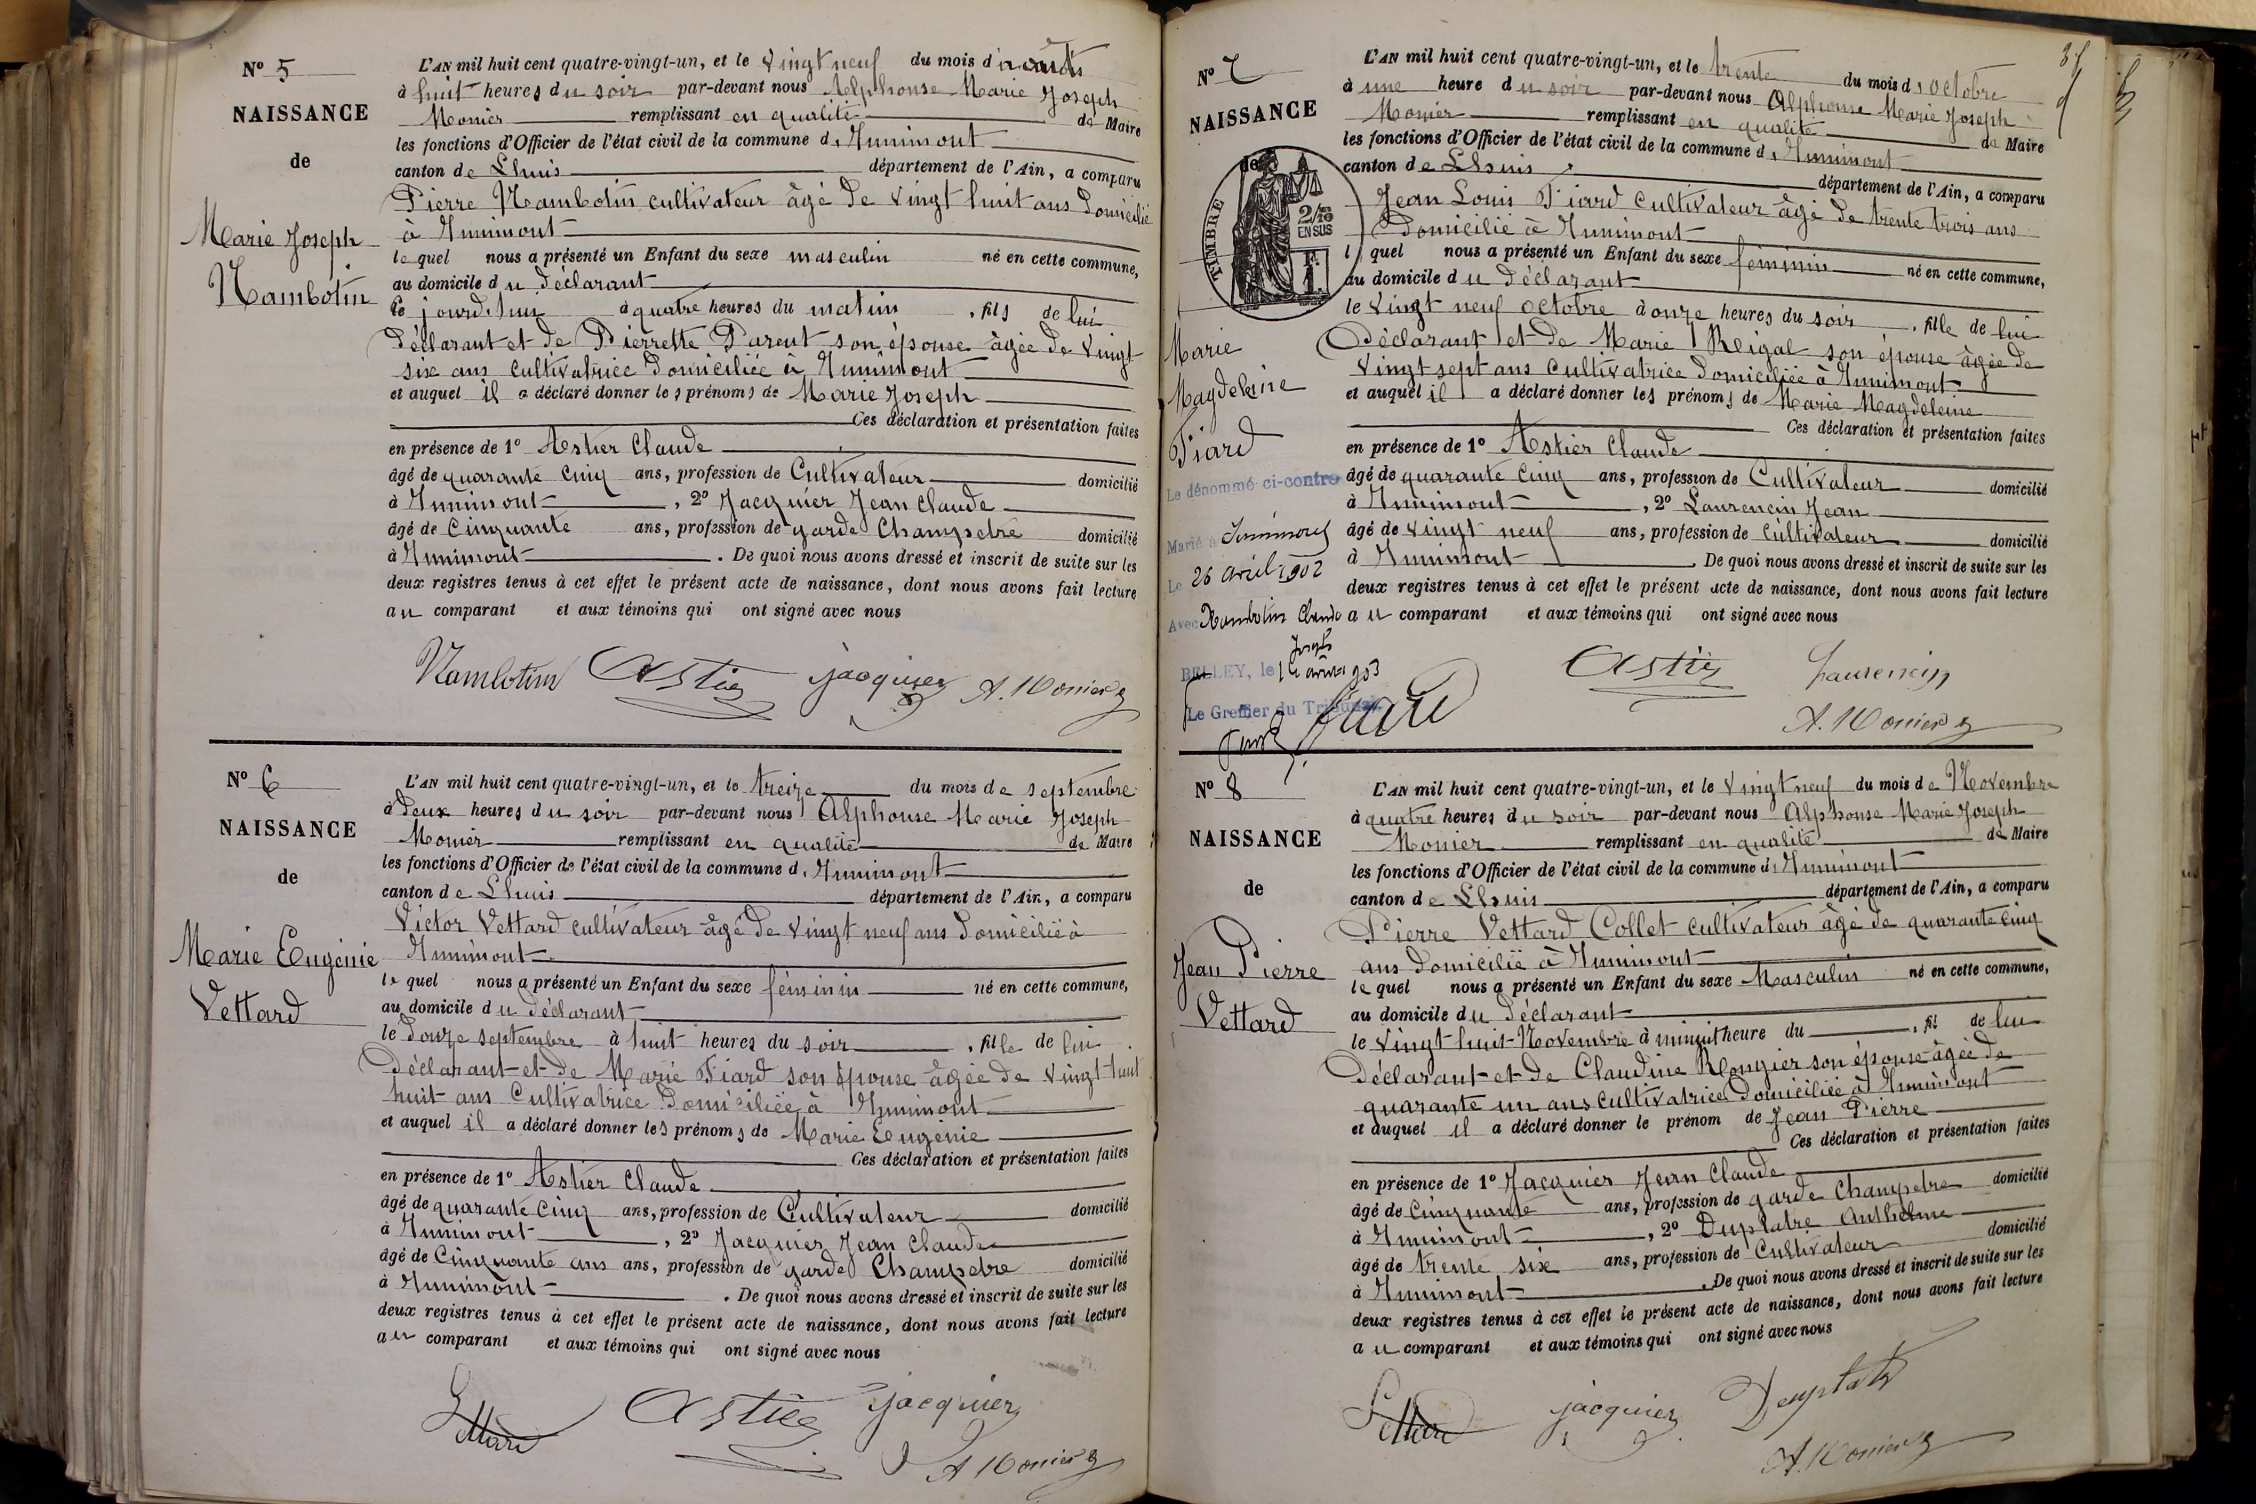 Nº 5
NAISSANCE
de
Marie Joseph
Nambotin
L'AN mil huit cent quatre-vingt-un, et le vingt neuf du mois d'août
à huit heures du soir par-devant nous Alphonse Marie Joseph
Monier remplissant en qualité de Maire
les fonctions d'Officier de l'état civil de la commune d'Innimont
canton de Lhuis département de l'Ain, a comparu
Pierre Nambotin cultivateur âgé de vingt huit ans domicilié
à Innimont
lequel nous a présenté un Enfant du sexe masculin né en cette commune,
au domicile du déclarant
le jourd'hui à quatre heures du matin, fils de lui
déclarant et de Pierrette Parent son épouse âgée de vingt
six ans cultivatrice domiciliée à Innimont
et auquel il a déclaré donner les prénoms de Marie Joseph
Ces déclaration et présentation faites
en présence de 1º Astier Claude
âgé de quarante cinq ans, profession de Cultivateur domicilié
à Innimont, 2º Jacquier Jean Claude
âgé de Cinquante ans, profession de garde Champetre domicilié
à Innimont. De quoi nous avons dressé et inscrit de suite sur les
deux registres tenus à cet effet le présent acte de naissance, dont nous avons fait lecture
au comparant et aux témoins qui ont signé avec nous
Nambotin Astier jacquier A. Monier
Nº 6
NAISSANCE
de
Marie Eugénie
Vettard
L'AN mil huit cent quatre-vingt-un, et le treize du mois de septembre
à deux heures du soir par-devant nous Alphonse Marie Joseph
Monier remplissant en qualité de Maire
les fonctions d'Officier de l'état civil de la commune d'Innimont
canton de Lhuis département de l'Ain, a comparu
Victor Vettard cultivateur âgé de vingt neuf ans domicilié à
Innimont
lequel nous a présenté un Enfant du sexe féminin né en cette commune,
au domicile du déclarant
le douze septembre à huit heures du soir, fille de lui
déclarant et de Marie Fiard son épouse âgée de vingt huit
huit ans Cultivatrice domiciliée à Innimont
et auquel il a déclaré donner les prénoms de Marie Eugénie
Ces déclaration et présentation faites
en présence de 1º Astier Claude
âgé de quarante cinq ans, profession de Cultivateur domicilié
à Innimont, 2º Jacquier Jean Claude
âgé de Cinquante ans ans, profession de garde Champetre domicilié
à Innimont. De quoi nous avons dressé et inscrit de suite sur les
deux registres tenus à cet effet le présent acte de naissance, dont nous avons fait lecture
au comparant et aux témoins qui ont signé avec nous
Vettard Astier jacquier
A Monier
Nº 7
NAISSANCE
de
TIMBRE
2/10
EN SUS
Marie
Magdeleine
Fiard
Le dénommé ci-contre
Marié à Innimont
Le 26 avril 1902
Avec Nambotin Claude
Joseph
BELLEY, le
Le Greffier du Tribunal
L'AN mil huit cent quatre-vingt-un, et le trente du mois d'octobre
à une heure du soir par-devant nous Alphonse Marie Joseph
Monier remplissant en qualité de Maire
les fonctions d'Officier de l'état civil de la commune d'Innimont
canton de Lhuis département de l'Ain, a comparu
Jean Louis Fiard cultivateur âgé de trente trois ans
domicilié à Innimont
lequel nous a présenté un Enfant du sexe féminin né en cette commune,
au domicile du déclarant
le vingt neuf octobre à onze heures du soir, fille de lui
déclarant et de Marie Reigal son épouse âgée de
vingt sept ans cultivatrice domiciliée à Innimont
et auquel il a déclaré donner les prénoms de Marie Magdeleine
Ces déclaration et présentation faites
en présence de 1º Astier Claude
âgé de quarante cinq ans, profession de Cultivateur domicilié
à Innimont, 2º Laurencin Jean
âgé de vingt neuf ans, profession de cultivateur domicilié
à Innimont. De quoi nous avons dressé et inscrit de suite sur les
deux registres tenus à cet effet le présent acte de naissance, dont nous avons fait lecture
au comparant et aux témoins qui ont signé avec nous
Fiard Astier Laurencin
A. Monier
Nº 8
NAISSANCE
de
Jean Pierre
Vettard
L'AN mil huit cent quatre-vingt-un, et le vingt neuf du mois de Novembre
à quatre heures du soir par-devant nous Alphonse Marie Joseph
Monier remplissant en qualité de Maire
les fonctions d'Officier de l'état civil de la commune d'Innimont
canton de Lhuis département de l'Ain, a comparu
Pierre Vettard Collet cultivateur âgé de quarante cinq
ans domicilié à Innimont
lequel nous a présenté un Enfant du sexe Masculin né en cette commune,
au domicile du déclarant
le vingt huit Novembre à minuit heure du, fil de lui
déclarant et de Claudine Rougier son épouse âgée de
quarante un ans cultivatrice domiciliée à Innimont
et auquel il a déclaré donner le prénom de Jean Pierre
Ces déclaration et présentation faites
en présence de 1º Jacquier Jean Claude
âgé de cinquante ans, profession de garde Champetre domicilié
à Innimont, 2º Duplatre Anthelme
âgé de trente six ans, profession de Cultivateur domicilié
à Innimont. De quoi nous avons dressé et inscrit de suite sur les
deux registres tenus à cet effet le présent acte de naissance, dont nous avons fait lecture
au comparant et aux témoins qui ont signé avec nous
Vettard jacquier Duplatre
A. Monier